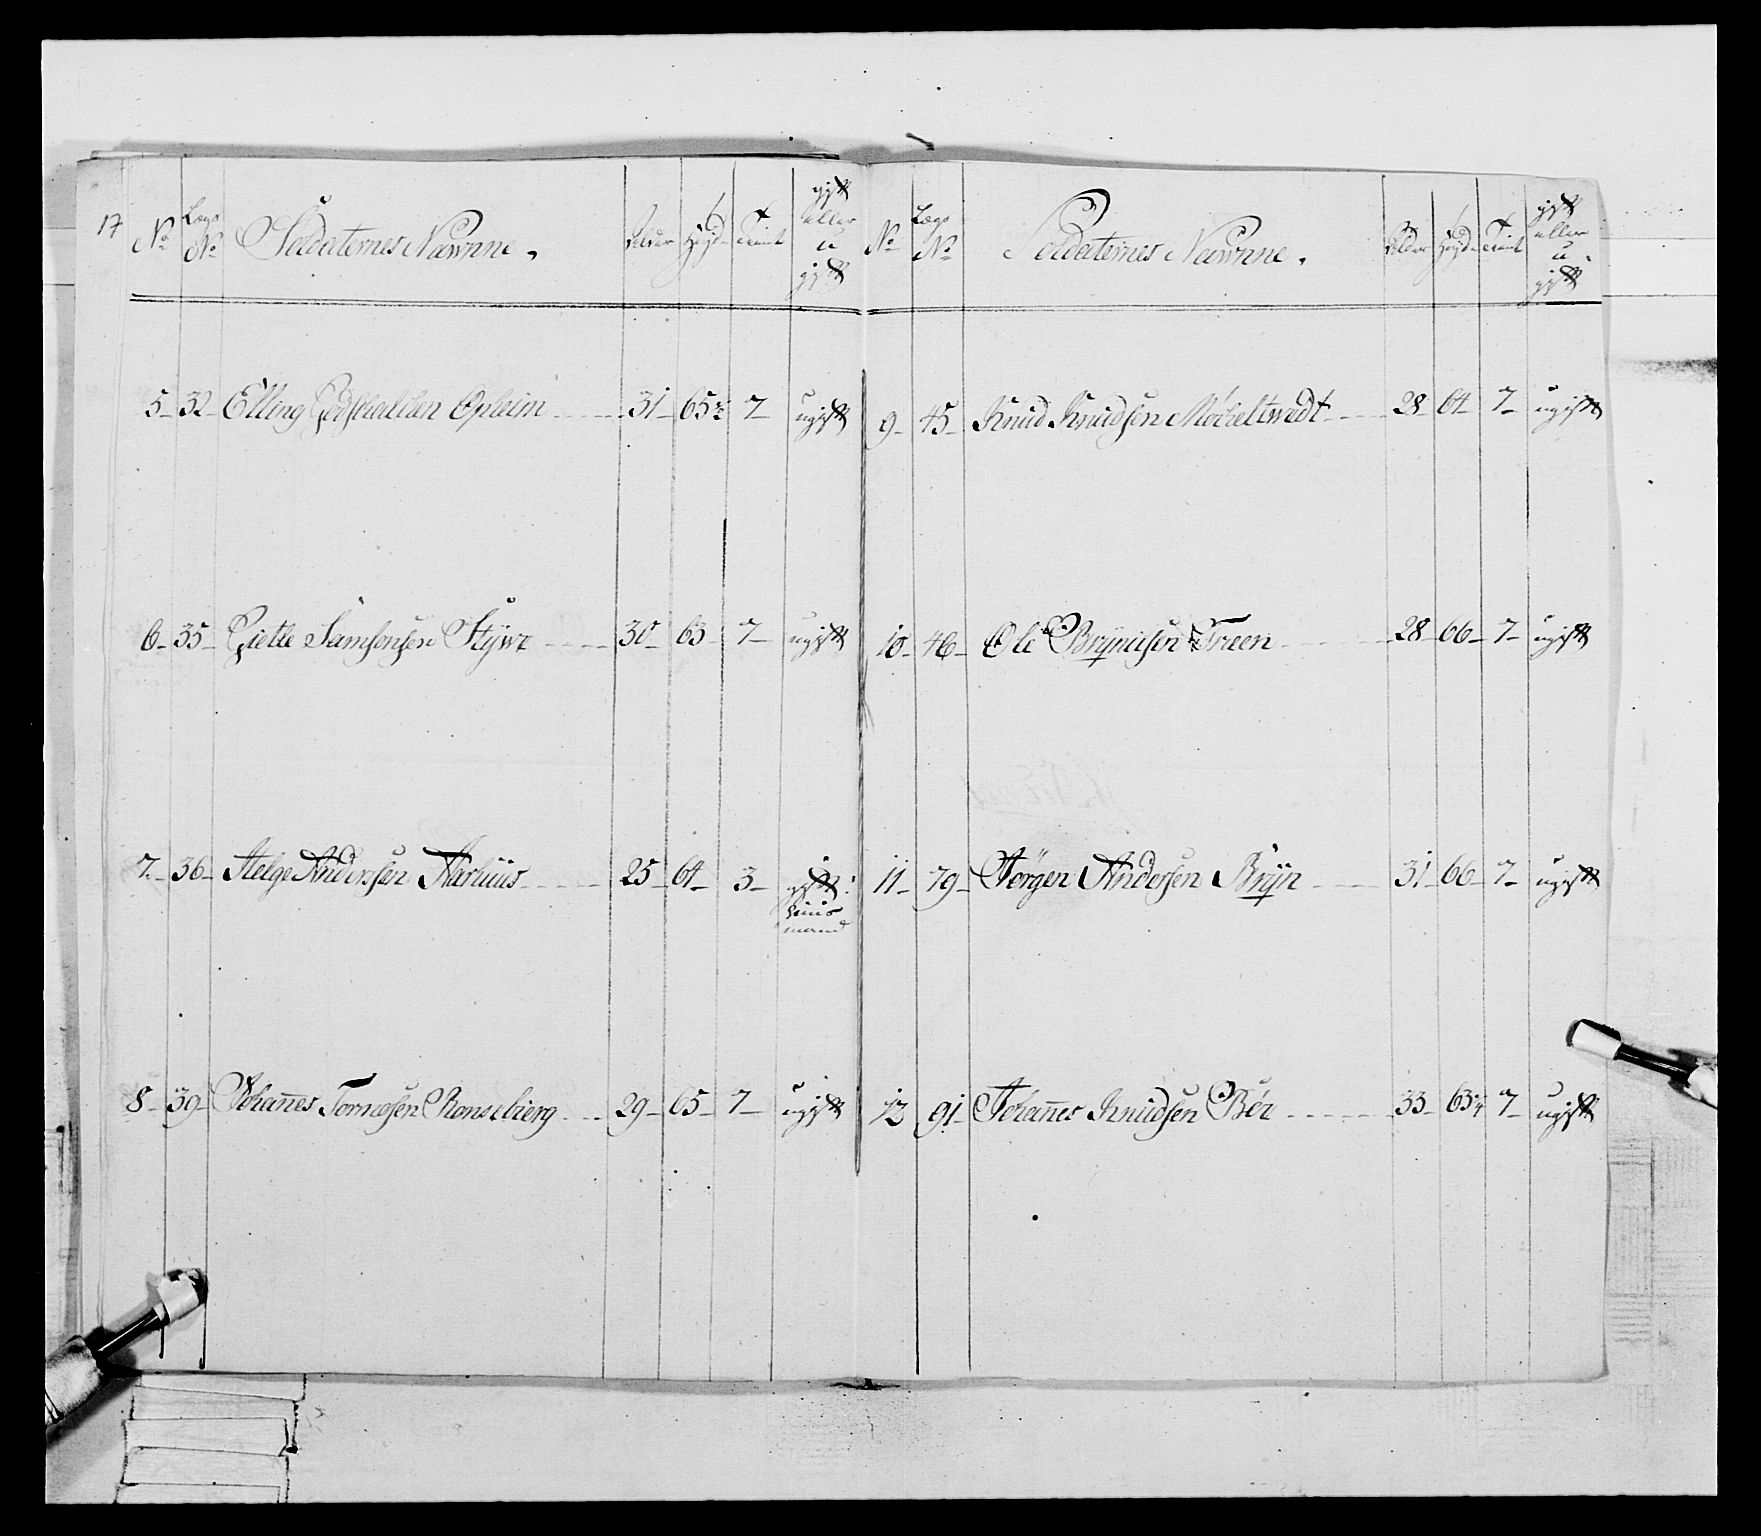 17
No Lægs No Soldaternes Nawnne. Alder Høyde Tient gift eller u gift
5 32 Elling Opheim 31 65½ 7 ugift
6 35 Gietle Samsonsen Stywe 30 63 7 ugift
7 36 Helge Andersen Aarhuus 25 64 3 gift: Huus mand
8 39 Johañes Ronsebierg 29 65 7 ugift
No Lægs No Soldaternes Nawnne. Alder Høyde Tient gift eller u gift
9 45 Knud Knudsen 28 64 7 ugift
10 46 Ole Brynildsen Treen 28 66 7 ugift
11 79 Jørgen Andersen Bryn 31 66 7 ugift
12 91 Johañes Knudsen Bøe 33 7 ugift